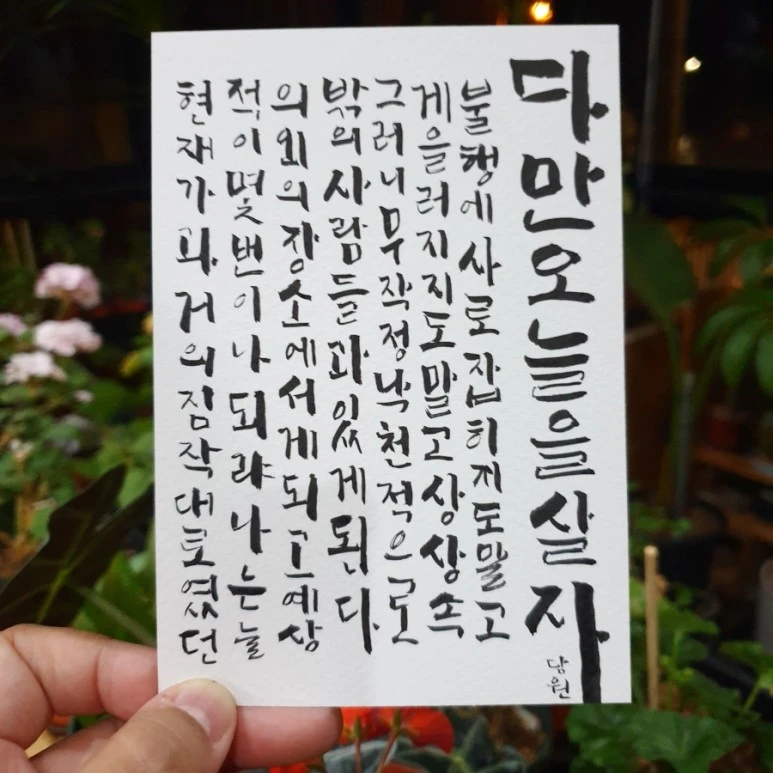 현재가과거의짐작대로였던
적이몇번이나되랴나는늘
의외의장소에서게되고예상
밖의사람들과있게된다.
그러니무작정낙천적으로
게을러지지도말고상상속
불행에사로잡히지도말고
다만오늘을살자
담원